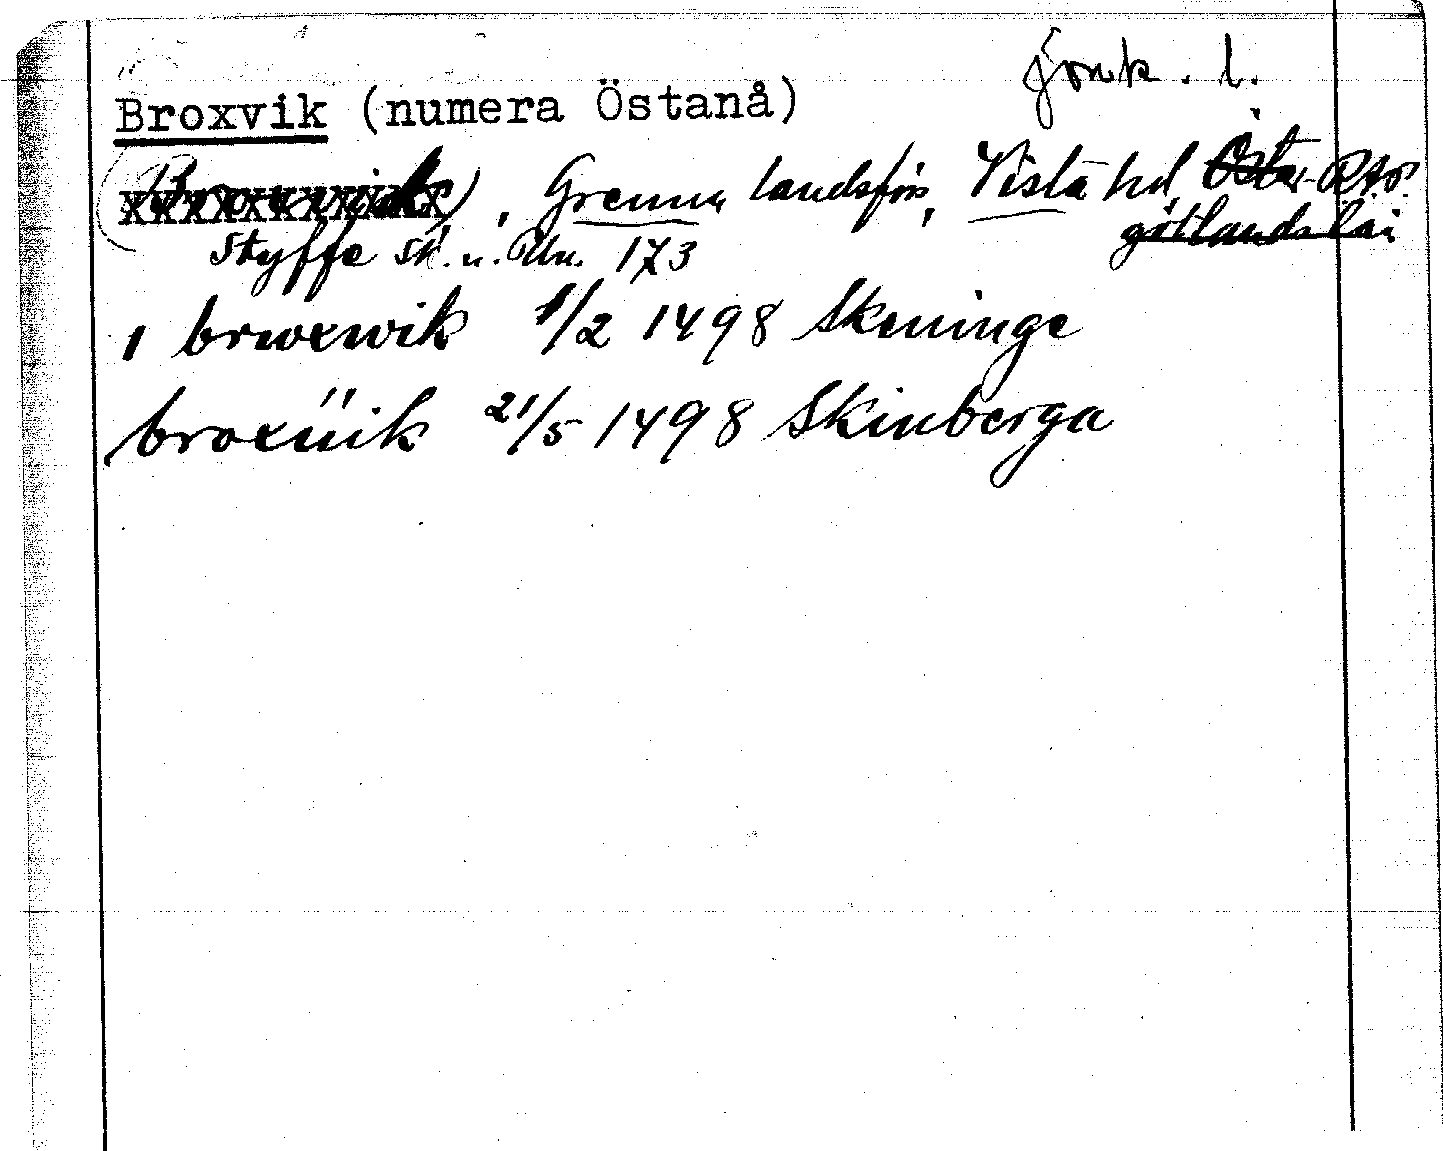 jönk. l.
Broxvik (numera Östanå)
Broxvik), Grenna landsförs, Vista hd, Öster-
götlands län
Styffe Sk. u. Un. 173
1 brwxwik 1/2 1498 Skeninge
broxüik 21/5 1498 Skinberga